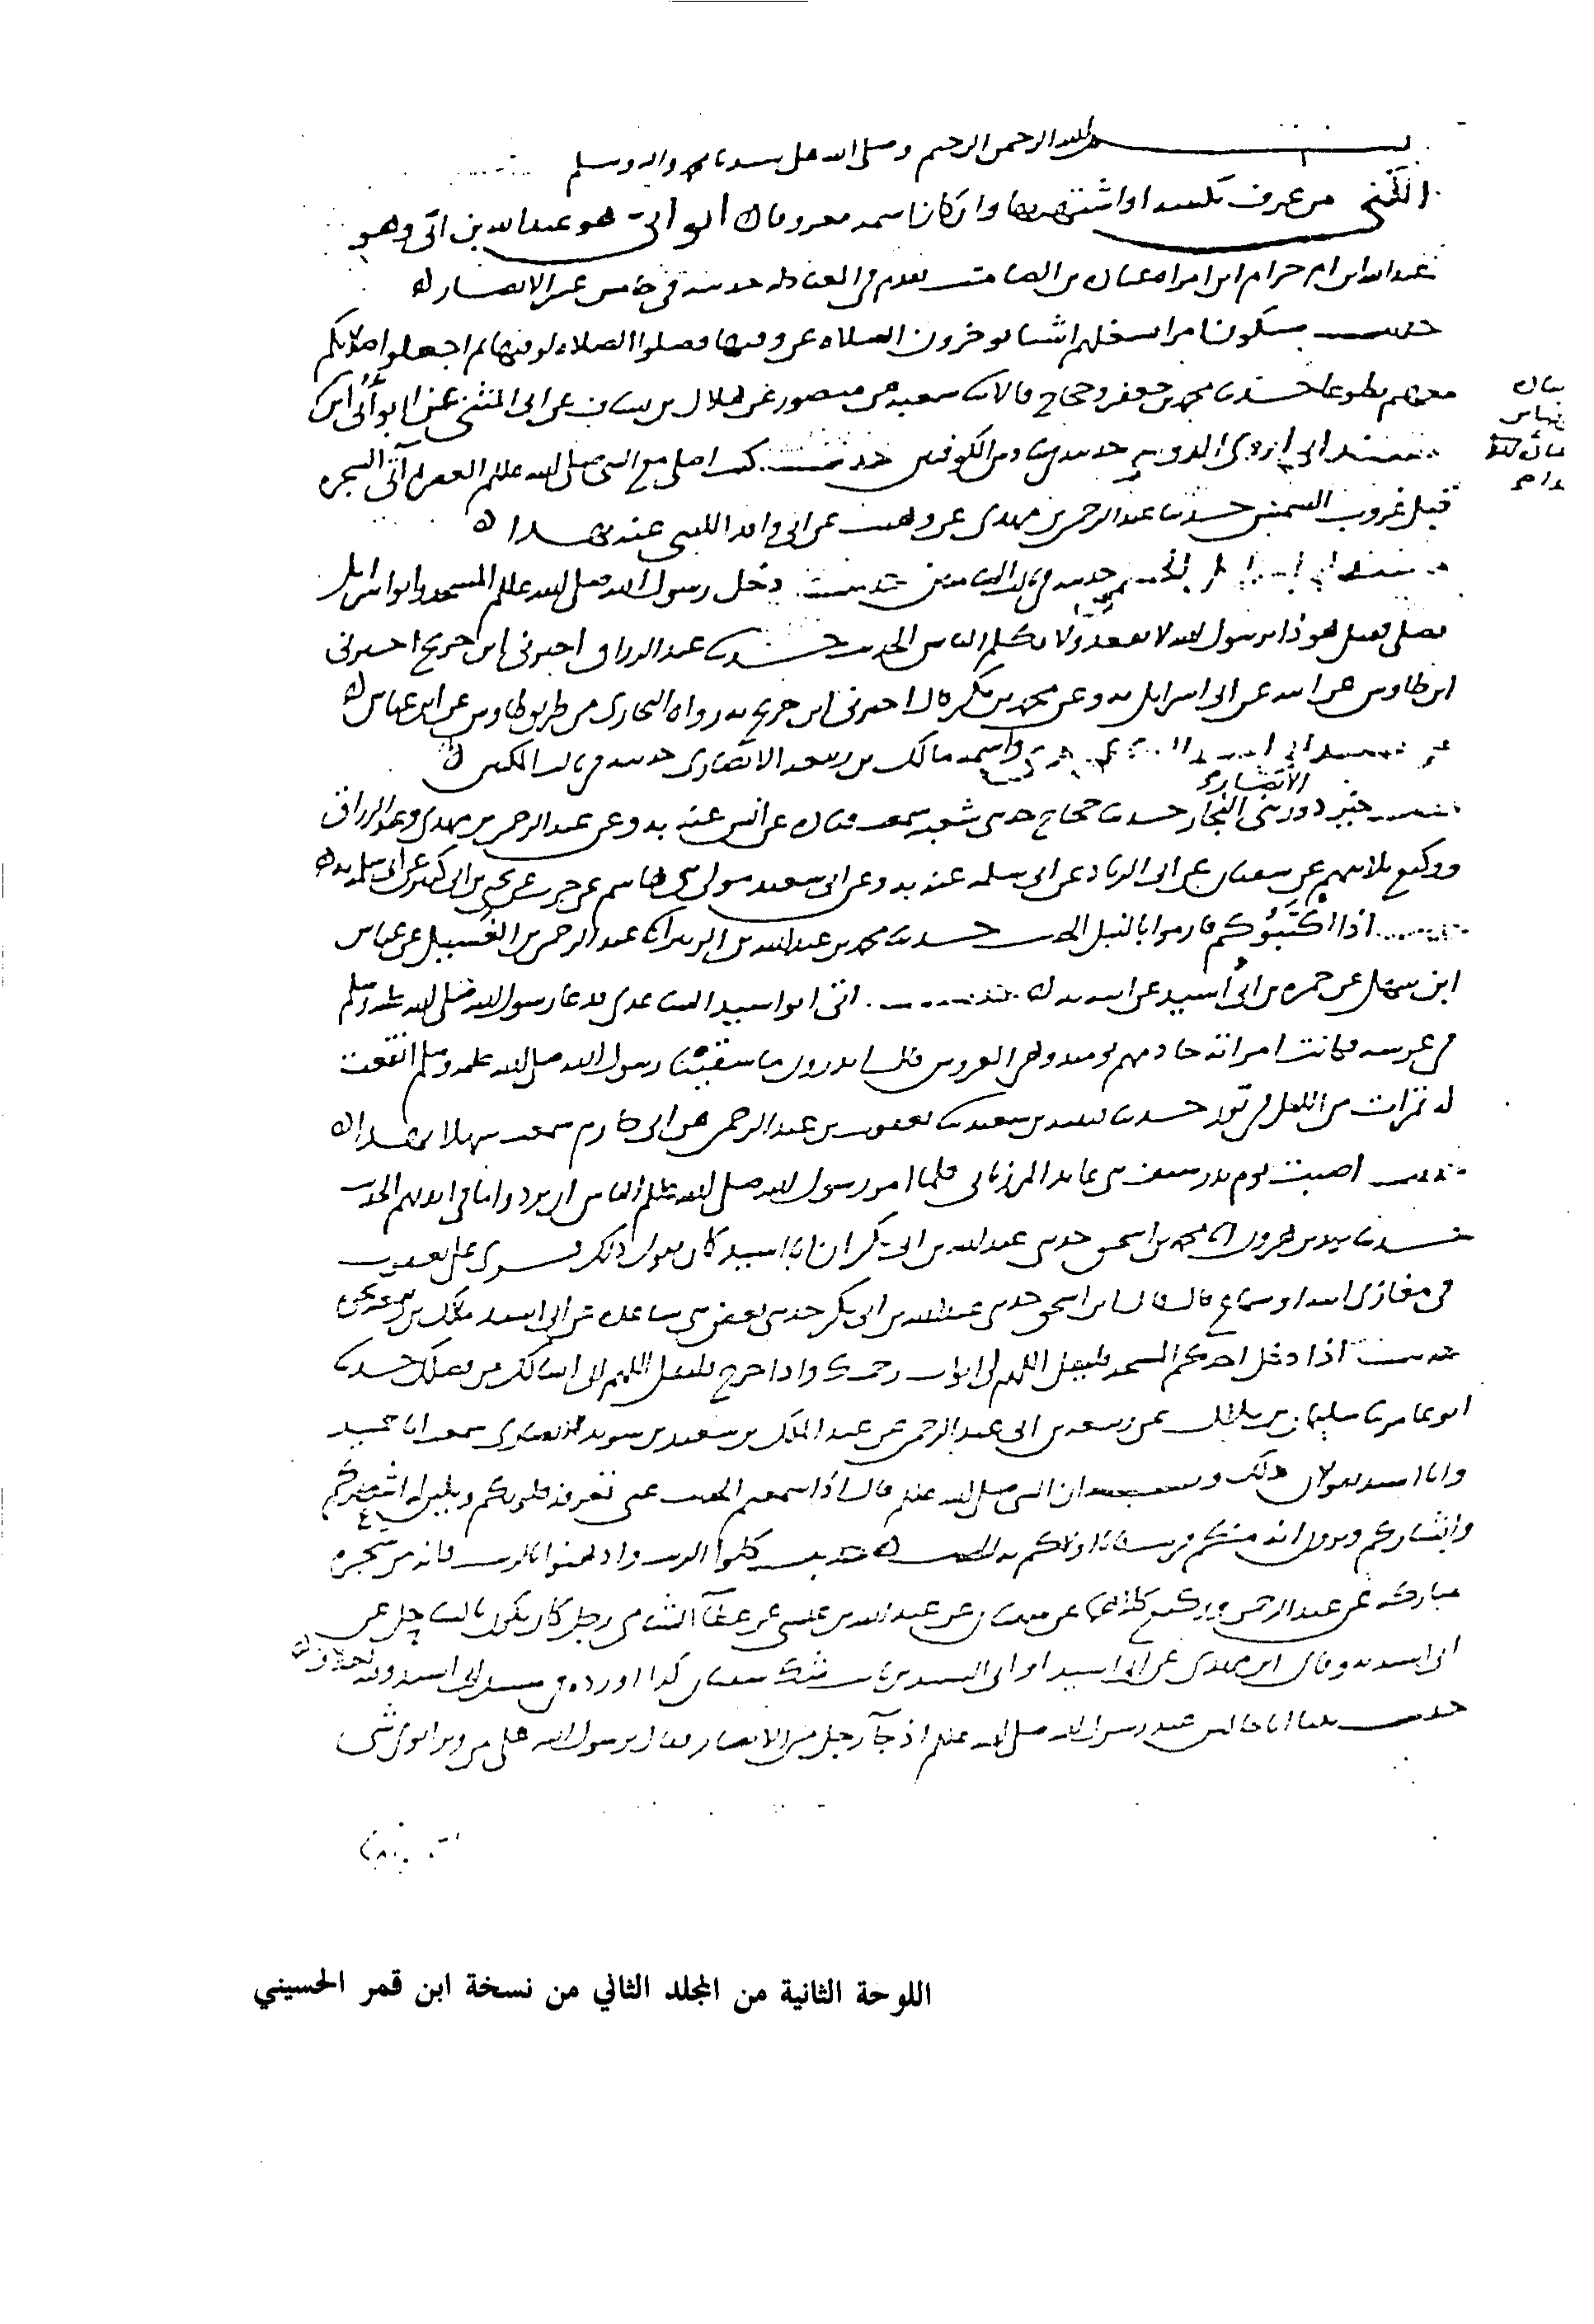 بسم الله الرحمن الرحيم وصلى الله على سيدنا محمد واله وسلم
الكنى من عرف بكنيته او اشتهر بها وان كان اسمه معروفا ابو ابي هو عبد الله بن ابي وهو
عبد الله ابن ام حرام ابن امراة عبادة بن الصامت تقدم في العبادلة حديثه في خامس عشر الانصار
حديث ستكون امرا تشغلهم اشيا يوخرون الصلاة عن وقتها فصلوا الصلاة لوقتها ثم اجعلوا صلاتكم
معهم تطوعا حدثنا محمد بن جعفر وحجاج قالا ثنا شعبة عن منصور عن هلال بن يساف عن ابي المثنى عن ابو ابي ابن
مسند ابي اروى الدوسي حديثه في ثاني الكوفيين حديث كنت اصلي مع النبي صلى الله عليه وسلم العصر ثم آتي الشجرة
قبل غروب الشمس حدثنا عبد الرحمن بن مهدي عن وهيب عن ابي واقد الليثي عنه بهذا
دخل رسول الله صلى الله عليه وسلم المسجد وابو اسرايل
يصلي فقيل هو ذا يرسول الله لا يقعد ولا يكلم الناس الحديث حدثنا عبد الرزاق اخبرني ابن جريج اخبرني
ابن طاوس عن ابيه عن ابي اسرايل به وعن محمد بن بكر قال اخبرني ابن جريج به رواه البخاري من طريق طاوس عن ابن عباس
واسمه مالك بن ربيعة الانصاري حديثه في ثالث المكيين
الانصار
حديث خير دور بني النجار حدثنا حجاج حدثني شعبة سمعت قتادة عن انس عنه به وعن عبد الرحمن بن مهدي وعبد الرزاق
ووكيع ثلاثتهم عن سفيان عن ابي الزناد عن ابي سلمة عنه به وعن ابي سعيد مولى بني هاشم عن حرب عن يحيى بن ابي كثير عن ابي سلمة به
حديث اذا اكثبوكم فارموا بالنبل الحديث حدثنا محمد بن عبد الله بن الزبير انا عبد الرحمن بن الغسيل عن عباس
ابن سهل عن حمزة بن ابي اسيد عن ابيه به حديث اتى ابو اسيد الساعدي فدعا رسول الله صلى الله عليه وسلم
في عرسه فكانت امراته خادمهم يومئذ وهي العروس قال تدرون ما سقيت رسول الله صلى الله عليه وسلم انقعت
له تمرات من الليل في تور حدثنا قتيبة بن سعيد ثنا يعقوب بن عبد الرحمن عن ابي حازم سمعت سهلا بهذا
حديث اصبت يوم بدر سيف بني عابد المرزبان فلما امر رسول الله صلى الله عليه وسلم الناس ان يردوا ما في ايديهم الحديث
حدثنا يزيد بن هرون انا محمد بن اسحق حدثني عبد الله بن ابي بكر ان ابا اسيد كان يقول ذلك قرئ على يعقوب
في مغازي ابيه او سماع قال قال ابن اسحق حدثني عبد الله بن ابي بكر حدثني بعض بني ساعدة عن ابي اسيد مالك بن ربيعة
حديث اذا دخل احدكم المسجد فليقل اللهم لي ابواب رحمتك واذا خرج فليقل اللهم اني اسالك من فضلك حدثنا
ابو عامر ثنا سليمان بن بلال عن ربيعة بن ابي عبد الرحمن عن عبد الملك بن سعيد بن سويد الانصاري سمعت ابا حميد
وابا اسيد يقولان ذلك وبه ان النبي صلى الله عليه قال اذا سمعتم الحديث عني تعرفه قلوبكم وتلين له اشعاركم
وابشاركم وترون انه منكم قريب فانا اولاكم به الحديث حديث كلوا الزيت وادهنوا بالزيت فانه من شجرة
مباركة عن عبد الرحمن ووكيع كلاهما عن سفيان عن عبد الله بن عيسى عن عطآ الشامي رجل كان يكون بالساحل عن
ابي اسيد به وقال ابن مهدي عن ابي اسيد او ابي اسيد بن ثابت شك سفيان كذا اورده في مسند ابي اسيد
حديث بينما انا جالس عند رسول الله صلى الله عليه اذ جآ رجل من الانصار فقال يرسول الله هل بقي من بر ابوي شي
اللوحة الثانية من المجلد الثاني من نسخة ابن قمر الحسيني